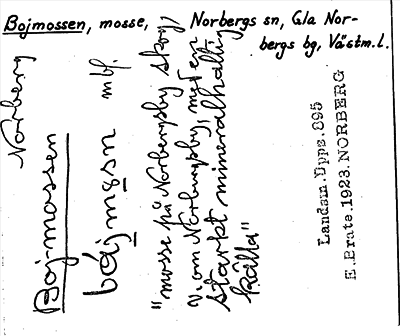 Bojmossen, mosse, Norbergs sn, Gla Nor-
bergs bg, Västm.l.
Norberg
Bojmossen
båjmɷsn mbf.
"mosse på Norbergsby skog,
v. om Norbergsby, med en
starkt mineralhaltig
källa"
Landsm. Upps. 895
E. Brate. 1923. NORBERG